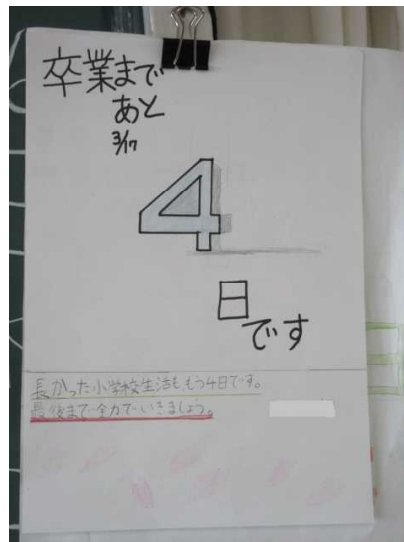 卒業まで
あと
3/17
4
日
です
長かった小学校生活ももう4日です。
最後まで全力でいきましょう。